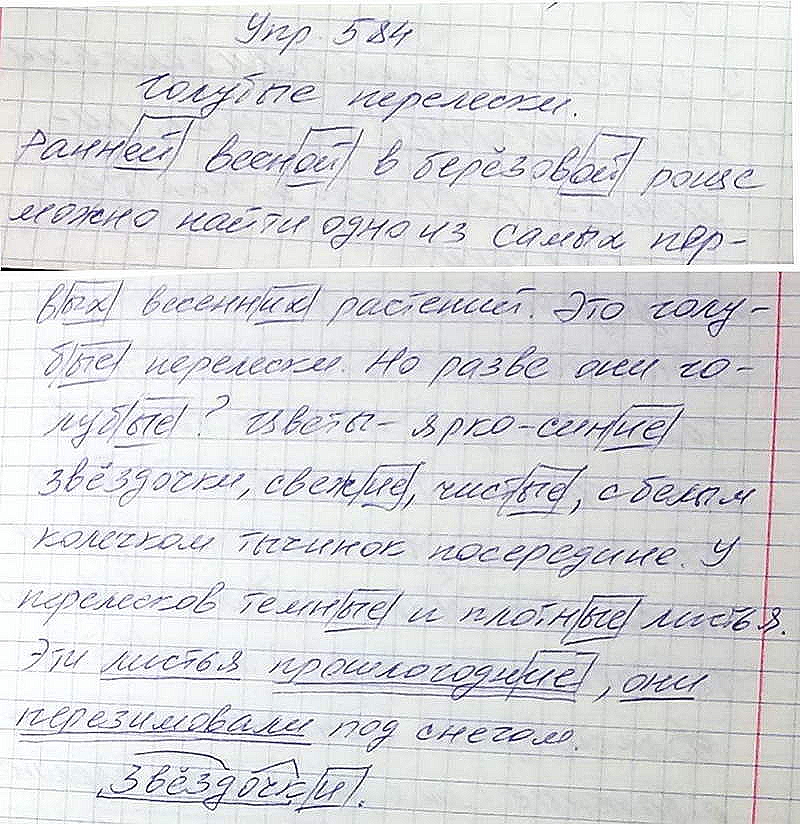 Упр. 584
Голубые перелески.
Ранней весной в берёзовой роще
можно найти одно из самых пер-
вых весенних растений. Это голу-
бые перелески. Но разве они го-
лубые? Цветы - ярко-синие
звёздочки, свежие, чистые, с белым
колечком тычинок посередине. У
перелесков темные и плотные листья.
Эти листья прошлогодние, они
перезимовали под снегом.
Звёздочки.